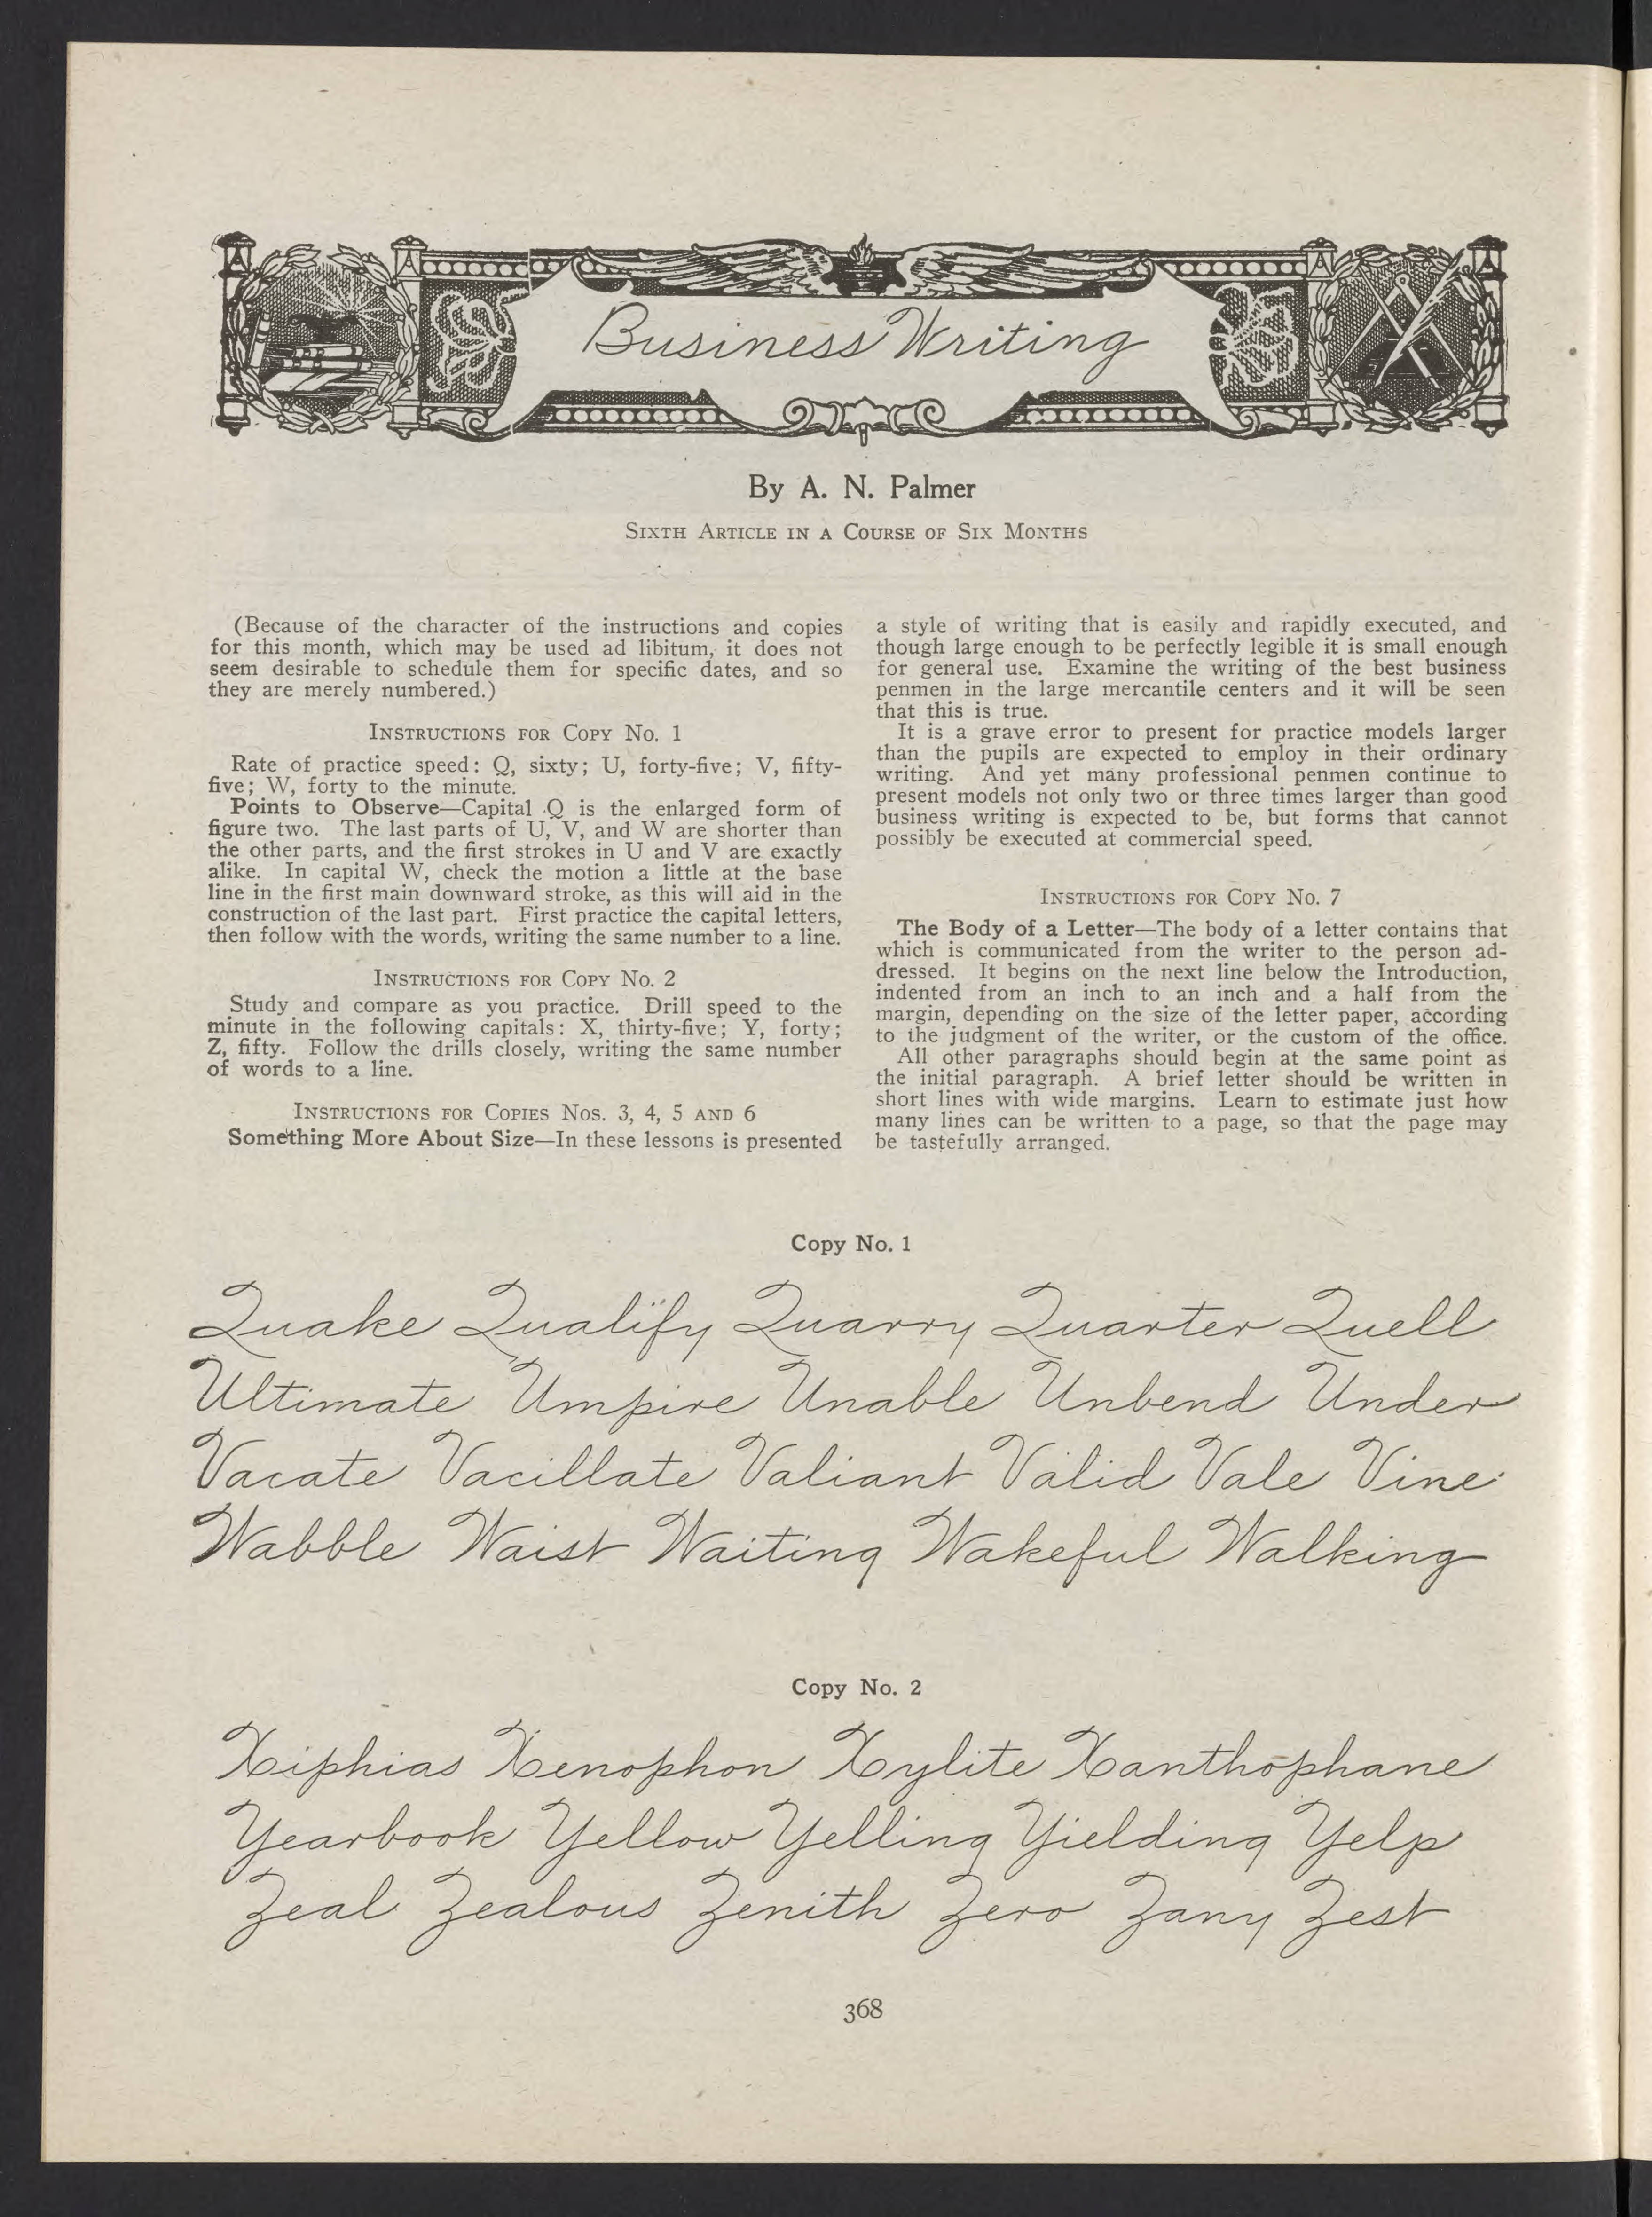 Business Writing
By A. N. Palmer
Sixth Article in a Course of Six Months
(Because of the character of the instructions and copies
for this month, which may be used ad libitum, it does not
seem desirable to schedule them for specific dates, and so
they are merely numbered.)
Instructions for Copy No. 1
Rate of practice speed: Q, sixty; U, forty-five; V, fifty-
five; W, forty to the minute.
Points to Observe—Capital Q is the enlarged form of
figure two. The last parts of U, V, and W are shorter than
the other parts, and the first strokes in U and V are exactly
alike. In capital W, check the motion a little at the base
line in the first main downward stroke, as this will aid in the
construction of the last part. First practice the capital letters,
then follow with the words, writing the same number to a line.
Instructions for Copy No. 2
Study and compare as you practice. Drill speed to the
minute in the following capitals: X, thirty-five; Y, forty;
Z, fifty. Follow the drills closely, writing the same number
of words to a line.
Instructions for Copies Nos. 3, 4, 5 and 6
Something More About Size—In these lessons is presented
a style of writing that is easily and rapidly executed, and
though large enough to be perfectly legible it is small enough
for general use. Examine the writing of the best business
penmen in the large mercantile centers and it will be seen
that this is true.
It is a grave error to present for practice models larger
than the pupils are expected to employ in their ordinary
writing. And yet many professional penmen continue to
present models not only two or three times larger than good
business writing is expected to be, but forms that cannot
possibly be executed at commercial speed.
Instructions for Copy No. 7
The Body of a Letter—The body of a letter contains that
which is communicated from the writer to the person ad-
dressed. It begins on the next line below the Introduction,
indented from an inch to an inch and a half from the
margin, depending on the size of the letter paper, according
to the judgment of the writer, or the custom of the office.
All other paragraphs should begin at the same point as
the initial paragraph. A brief letter should be written in
short lines with wide margins. Learn to estimate just how
many lines can be written to a page, so that the page may
be tastefully arranged.
Copy No. 1
Quake Qualify Quarry Quarter Quell
Ultimate Umpire Unable Unbend Under
Vacate Vacillate Valiant Valid Vale Vine
Wabble Waist Waiting Wakeful Walking
Copy No. 2
Xiphias Xenophon Xylite Xanthophane
Yearbook Yellow Yelling Yielding Yelp
Zeal Zealous Zenith Zero Zany Zest
368